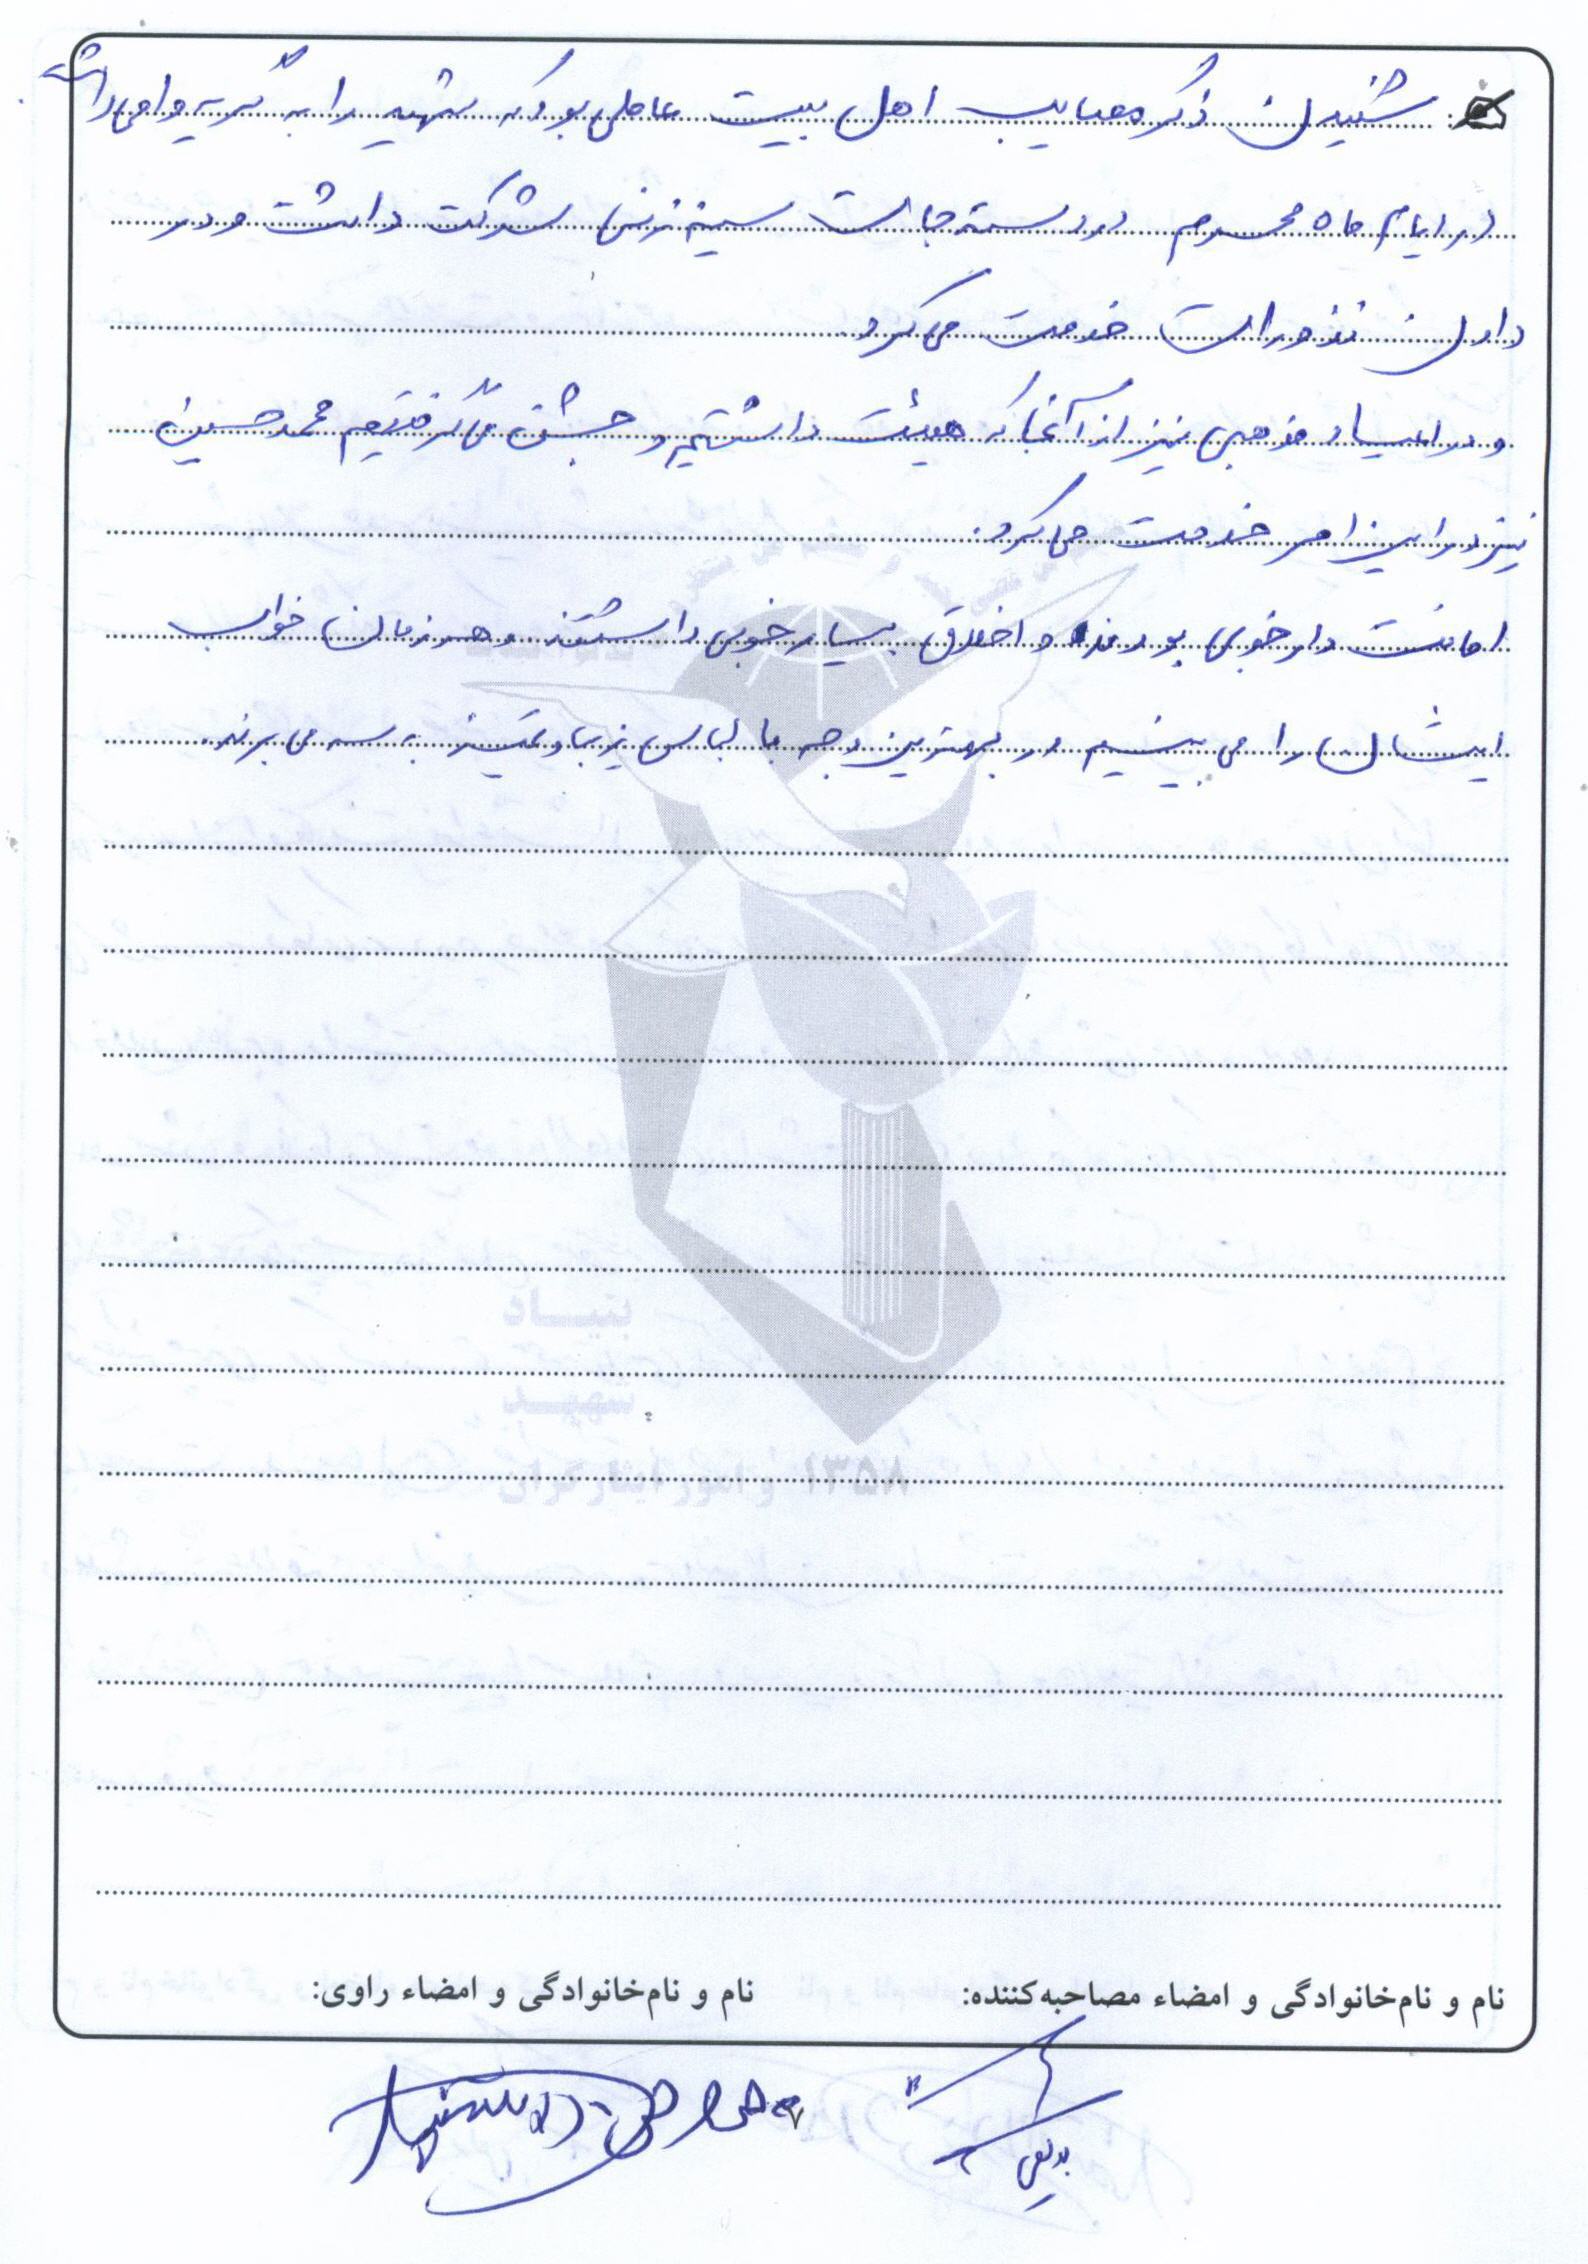 شنیدن ذکر مصایب اهل بیت عاملی بود که شهید را به گریه وامی‌داشت.
در ایام ماه محرم در دسته‌جات سینه زنی شرکت داشت و در
دادن نذورات خدمت می‌کرد
و در اعیاد مذهبی نیز از آنجا که هیئت داشتیم و جشن می‌گرفتیم محمدحسین
نیز در این امر خدمت می‌کرد.
امانت دار خوبی بودند و اخلاق بسیار خوبی داشتند و هر زمان خواب
ایشان را می‌بینیم در بهترین وجه با لباس زیبا و تمیز به سر می‌برند.
بنیاد
شهید
و امور ایثارگران ۱۳۵۸
نام و نام‌خانوادگی و امضاء مصاحبه‌کننده: نام و نام‌خانوادگی و امضاء راوی: